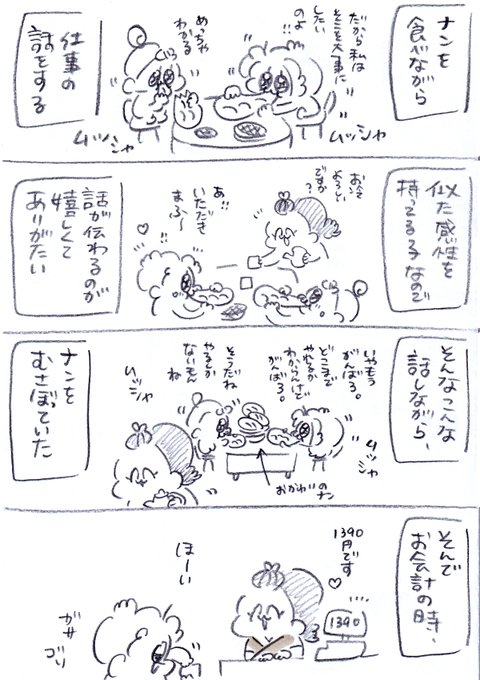 ナンを
食べながら
だから私は
そこを大事に
したい
のよ
めっちゃ
わかる
仕事の
話をする
ムッシャ
ムッシャ
似た感性を
持ってる子なので
お水
よろしい
ですか?
あ!!
いただき
まふ〜
話が伝わるのが
嬉しくて
ありがたい
そんなこんな
話しながら、
いやもう
がんばろ。
どこまで
やれるか
わからんけど
がんばろ。
そうだね
やるしか
ないもん
ね
ムッシャ
ムッシャ
おかわりのナン
ナンを
むさぼっていた
そんで
お会計の時、
1390
円です
1390
ほーい
ガサ
ゴソ